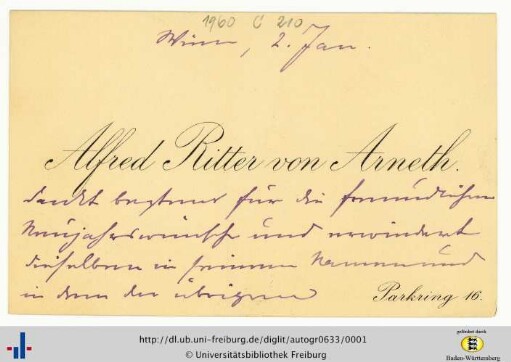 1960 C 210
Wien, 2. Jan.
Alfred Ritter von Arneth.
dankt bestens für die freundlichen
Neujahrswünsche und erwiedert
dieselben in seinem Namen und
in dem der übrigen
Parkring 16.
http://dl.ub.uni-freiburg.de/diglit/autogr0633/0001
© Universitätsbibliothek Freiburg
gefördert durch
Baden-Württemberg